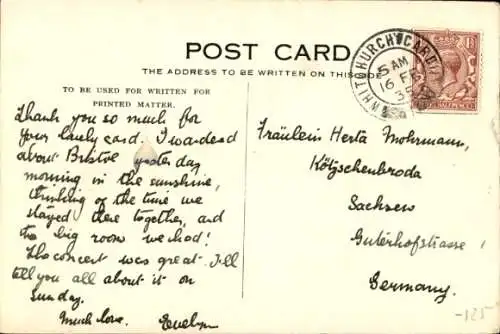 POST CARD
THE ADDRESS TO BE WRITTEN ON THIS SIDE
TO BE USED FOR WRITTEN FOR
PRINTED MATTER.
WHITCHURCH CARDIFF
5 AM
16 FE
35
Thank you so much for
your lovely card. I wandered
about Bristol yesterday
morning in the sunshine,
thinking of the time we
stayed there together, and
the big room we had!
The concert was great. I'll
tell you all about it on
Sunday.
Much love. Evelyn
Fräulein Herta Mohrmann,
Kötzschenbroda
Sachsen
Guterhofstrasse
Germany.
-125